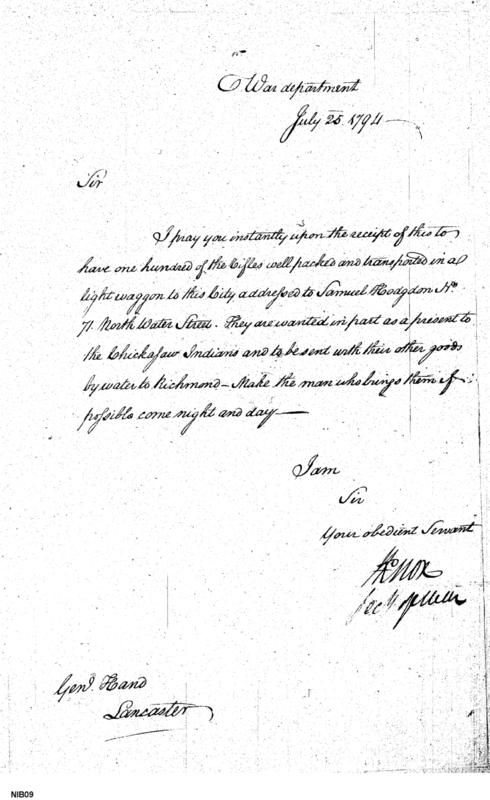 War department
July 25. 1794
Sir
I pray you instantly upon the receipt of this to
have one hundred of the Rifles well packed and transported in a
light waggon to this City addressed to Samuel Hodgdon No.
71. North Water Street. They are wanted in part as a present to
the Chickasaw Indians and to be sent with their other goods
by water to Richmond – Make the man who brings them if
possible come night and day —
I am
Sir
Your obedient Servant
HKnox
Secy of War
Genl. Hand
Lancaster
NIB09